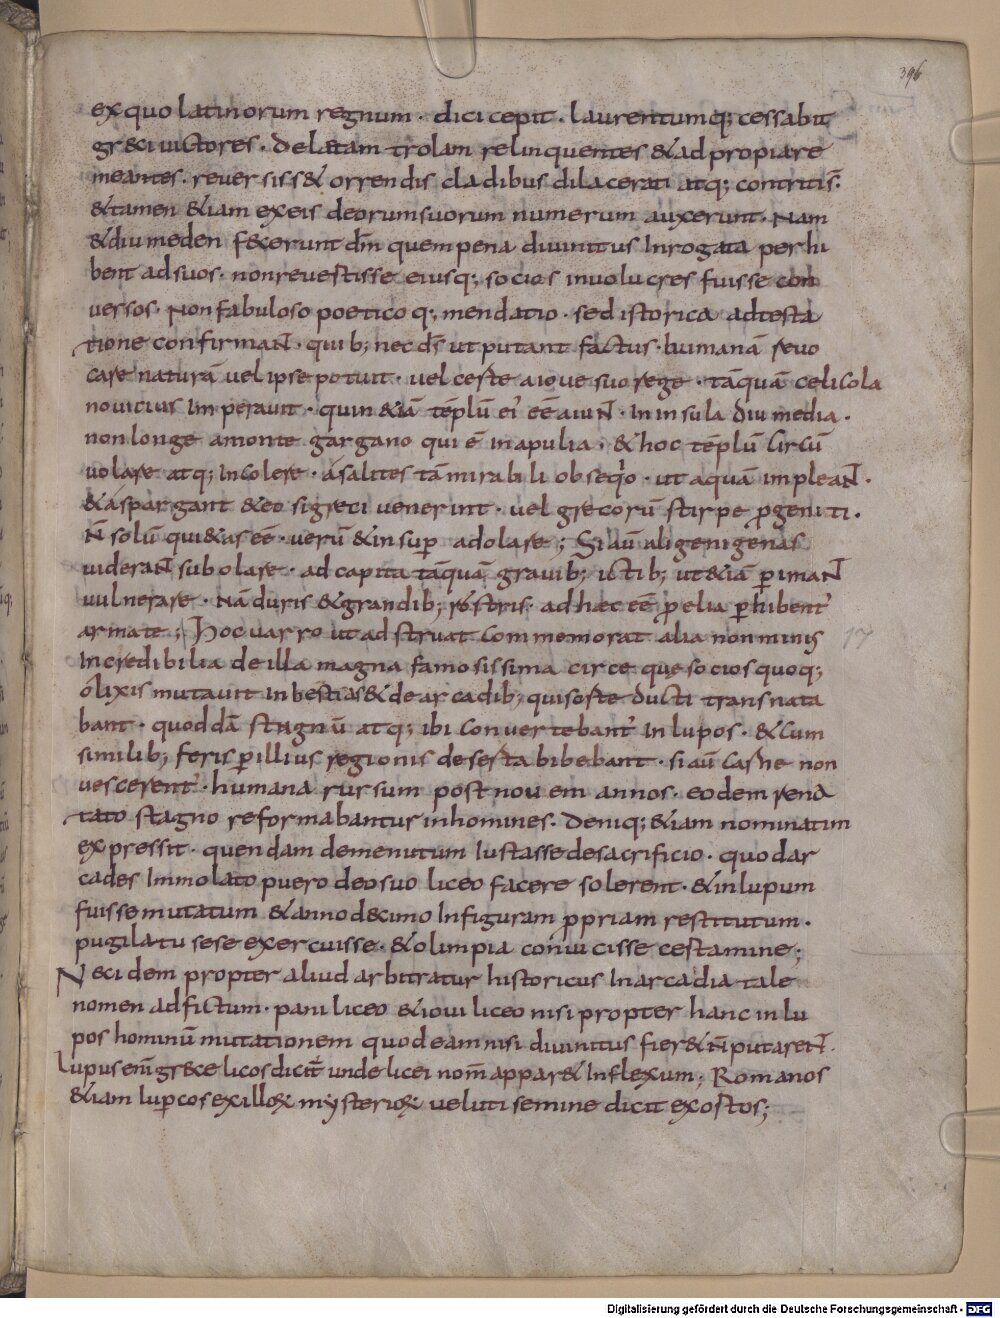 396
ex quo latinorum regnum · dici cepit · laurentumq; cessabit
gr&ci uictores · delatam troiam relinquentes & ad propiare
meantes · reuersi ss& orrendis cladibus dilacerati atq; contriti s̄:
& tamen &iam ex eis deorum suorum numerum auxerunt · Nam
& diumeden fecerunt dm̄ quem pena diuinitus Inrogata perhi
bent ad suos · non reuestisse eiusq; socios inuolucres fuisse con
uersos · Non fabuloso poetico q; mendatio · sed istorica adtesta
tione confirmaN̄ · quib; nec ds̄ ut putant factus · humanā reuo
care naturā uel ipse potuit · uel certe a ioue suo rege · tāquā celicola
nouicius Imperauit · quin &iā tēplū ei' eē aiuN̄ · In insula diumedia ·
non longe amonte gargano qui ē in apulia · & hoc tēplū circū
uolare atq; Incolere · asalites tā mirabili obseq'o · ut aquā impleaN̄ ·
& aspargant & eo si greci uenerint · uel grecorū stirpe ꝓgeniti ·
N̄ solū qui&as eē · uerū & insuꝑ adolare ; Si aū aligenigenas
uideraN̄ subolare · ad capita tāquā grauib; ictib; ut &iā ꝑimaN̄
uulnerare · Nā duris & grandib; rostris · ad hæc eē ꝓelia ꝑhibent'
armate ; Hoc uarro ut adstruat commemorat alia non minus 17
Incredibilia de illa magna famosissima circe que socios quoq;
olixis mutauit In bestias & de arcadib; qui sorte ducti transnata
bant · quoddā stagnū atq; ibi conuertebant' In lupos · & cum
similib; feris ꝑ illius regionis deserta bibebant · si aū carne non
uescerent' · humana rursum post nouem annos · eodem rena
tato stagno reformabantur in homines · Deniq; &iam nominatim
expressit · quendam demenutum Iustasse de sacrificio · quod ar
cades Immolato puero deo suo liceo facere solerent · & in lupum
fuisse mutatum & anno decimo In figuram ꝓpriam restitutum ·
pugilatu sese exercuisse · & olimpia conuicisse certamine ;
Nec idem propter aliud arbitratur historicus In arcadia tale
nomen adfictum · pani liceo & ioui liceo nisi propter hanc in lu
pos hominū mutationem quod eam nisi diuinitus fier& n̄ putareN̄ ·
Lupus em̄ gr&ce licos dicit' unde licei nom̄ appar& Inflexum ; Romanos
&iam luꝑcos ex illoꝝ mysterioꝝ ueluti semine dicit exortos ;
Digitalisierung gefördert durch die Deutsche Forschungsgemeinschaft - DFG